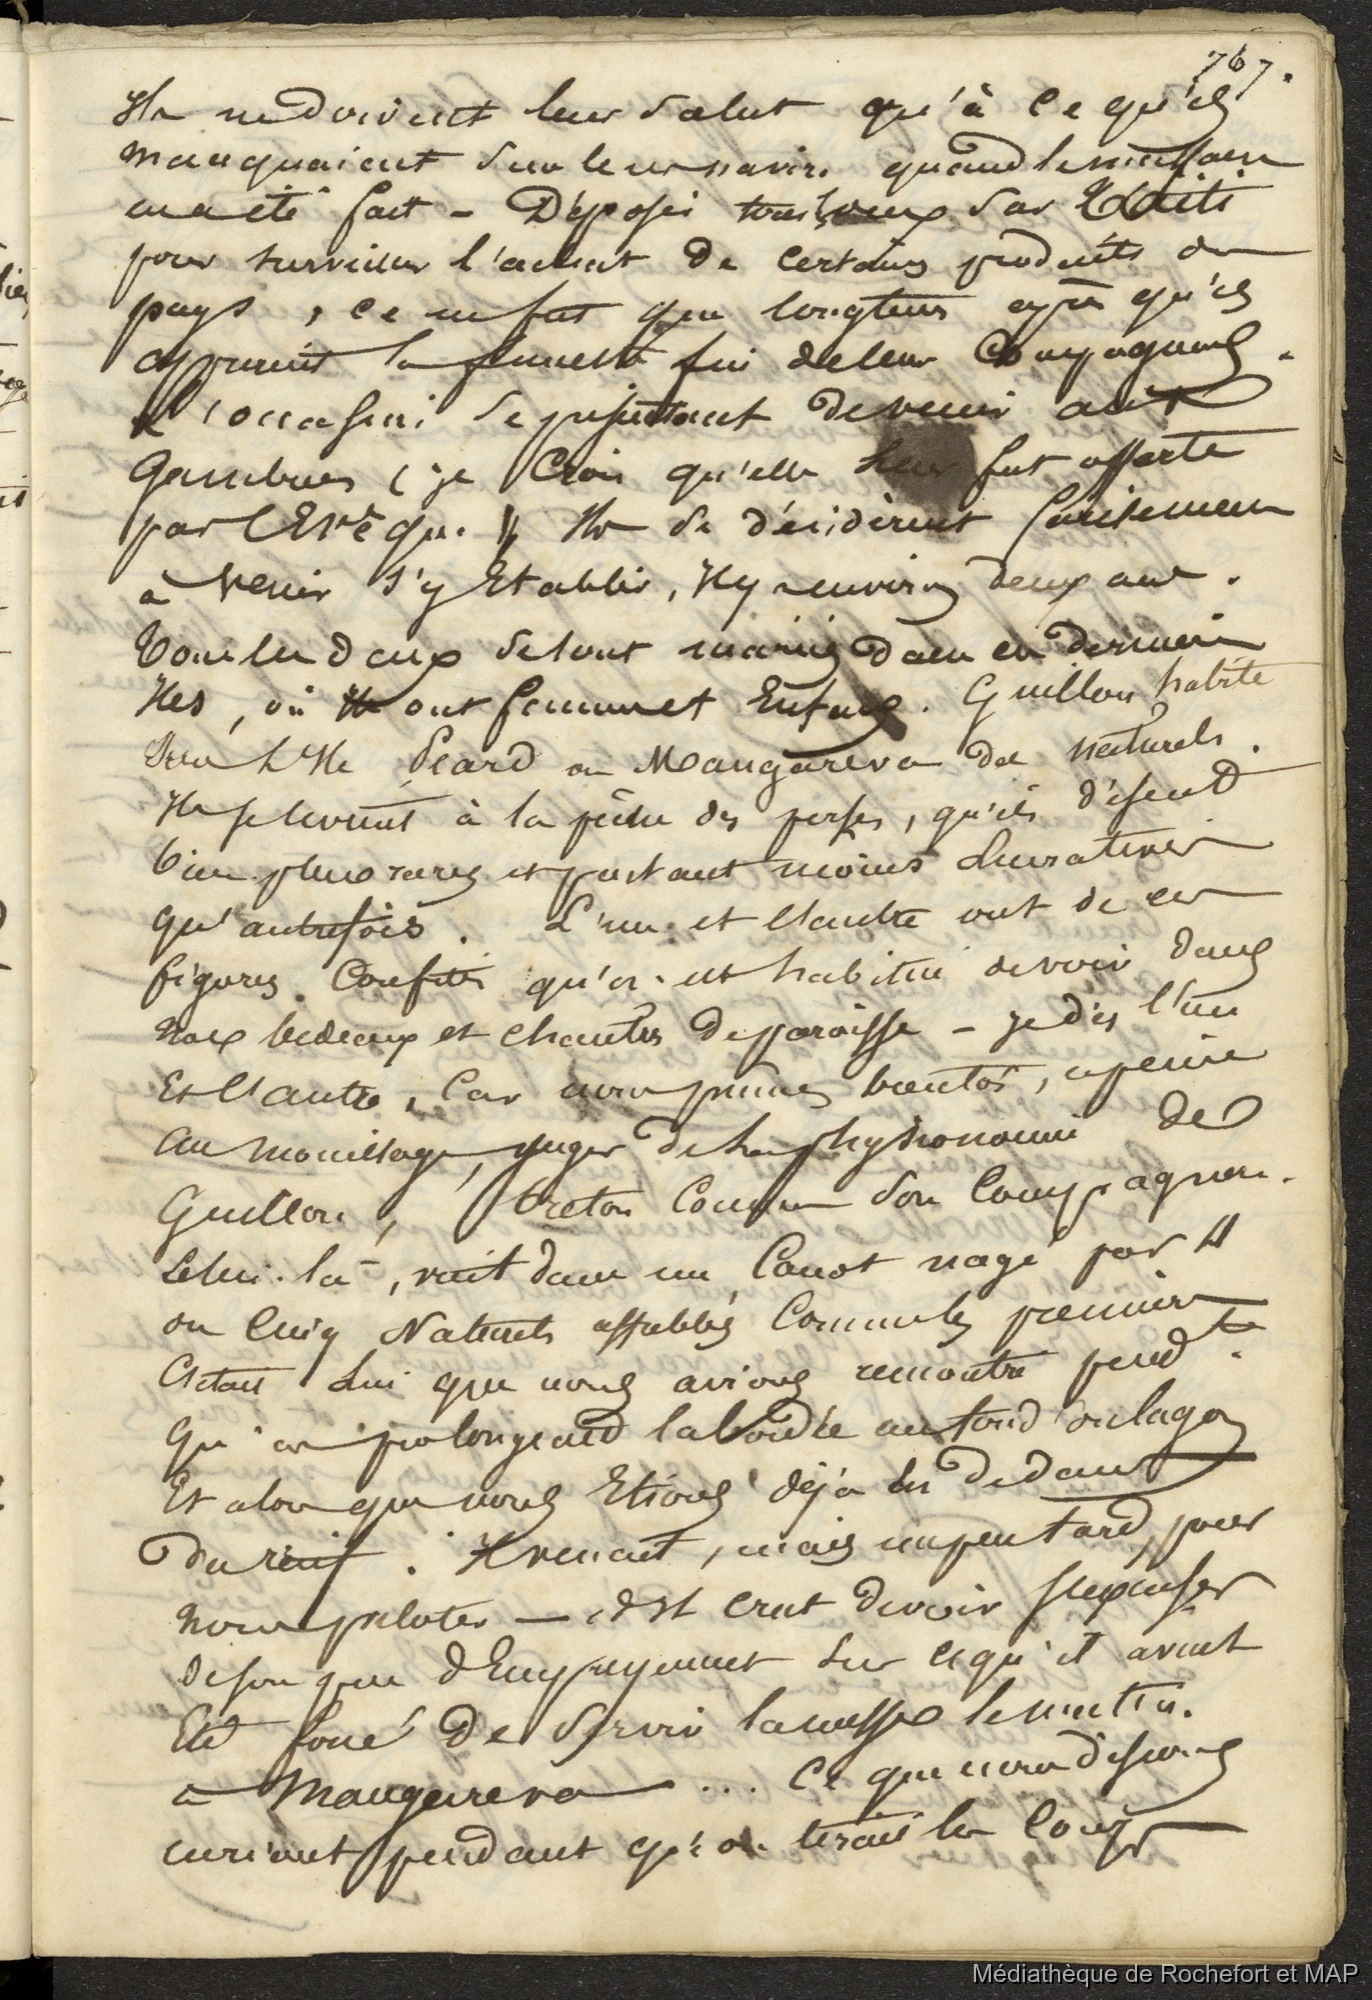 767.
Ils ne doivent leur salut qu'à ce qu'ils
manquaient sur leur navire quand le massacre
en a été fait - Déposés tous deux sur Taïti
pour surveiller l'achat de certains produits du
pays, ce ne fut que longtems après qu'ils
apprirent la funeste fin de leurs Compagnons.
L'occasion se présentant de venir aux
Gambiers (je Crois qu'elle leur fut offerte
par l'Evêque) Ils se décidèrent
à venir s'y Etablir, Il y a environ deux ans.
Tous les deux se sont mariés dans ces dernières
Iles, où Ils ont femmes et Enfans. Guillou habite
sur l'Ile Peard ou Mangareva des naturels.
Ils se livrent à la pêche des perles, qu'ils disent
bien plus rares et partant moins lucratives
qu'autrefois. L'un et l'autre ont de ces
figures Confites qu'on est habitué de voir dans
nos bedeaux et chantres de paroisse - je dis l'un
Et l'autre, Car nous pûmes bientôt, à peine
au mouillage, juger de la physionomie de
Guillou, breton Comme son Compagnon.
Celui-là, vint dans un Canot nagé par 4
ou Cinq Naturels affublés Comme les premiers
C'était lui que nous avions rencontré pendt.
qu'on prolongeait la bordée au fond du lagon
Et alors que nous Etions déjà en dedans
du récif. Il venait, mais un peu tard, pour
nous piloter — et Il crut devoir s'excuser
de son peu d'Empressement sur ce qu'il avait
Eté forcé de servir la messe le matin.
à Mangareva ... Ce que nous disions
en riant pendant qu'on tirait les Coups